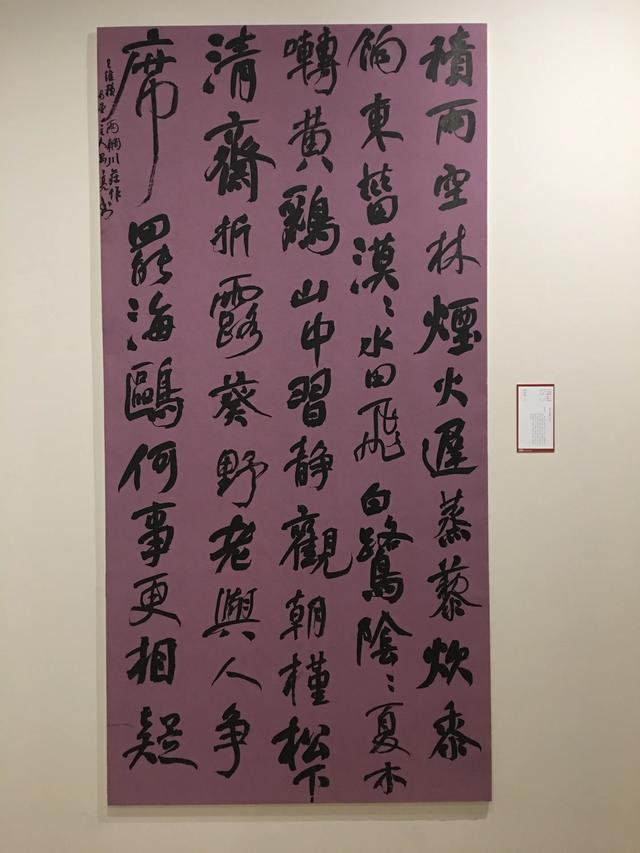 積雨空林煙火遲蒸藜炊黍
餉東菑漠〻水田飛白鷺陰〻夏木
囀黄鸝山中習静觀朝槿松下
清齋折露葵野老與人爭
席罷海鷗何事更相疑
王維積雨輞川莊作